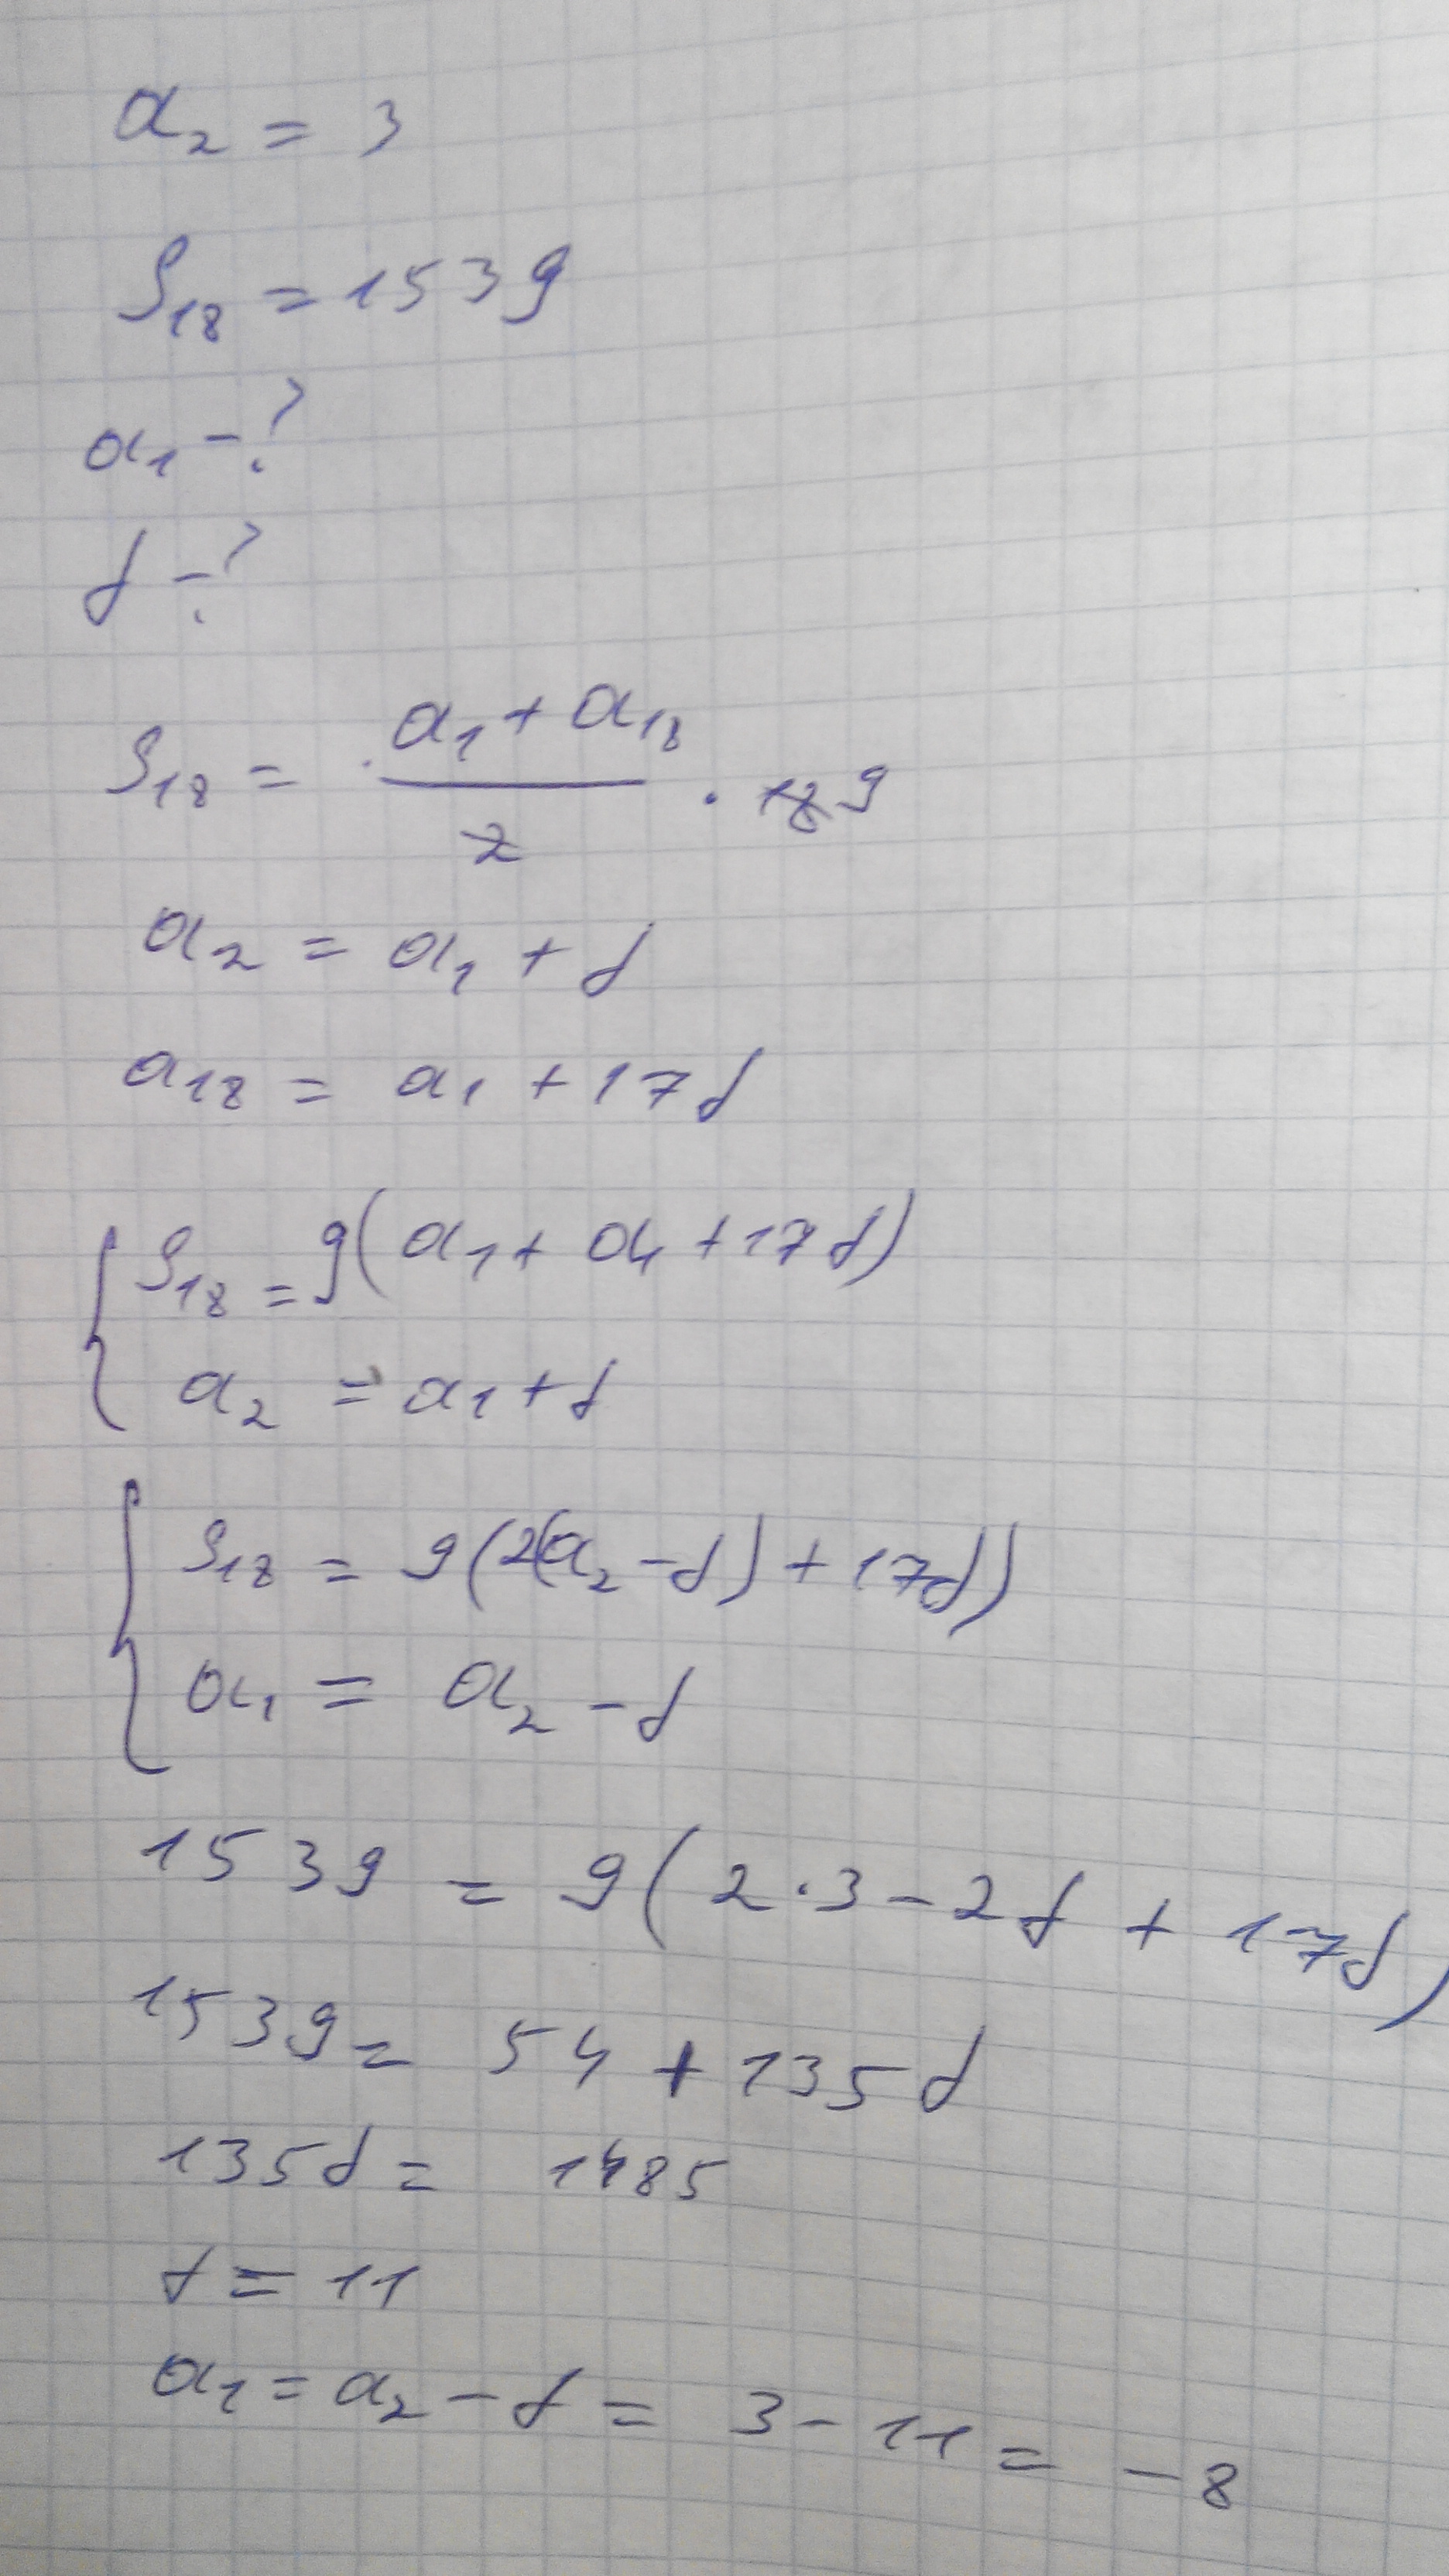 a₂ = 3
S₁₈ = 1539
a₁ – ?
d – ?
S₁₈ = (a₁ + a₁₈)/2 · 18 9
a₂ = a₁ + d
a₁₈ = a₁ + 17d
{ S₁₈ = 9(a₁ + a₁ + 17d)
a₂ = a₁ + d
{ S₁₈ = 9(2(a₂ – d) + 17d)
a₁ = a₂ – d
1539 = 9(2·3 – 2d + 17d)
1539 = 54 + 135d
135d = 1485
d = 11
a₁ = a₂ – d = 3 – 11 = –8